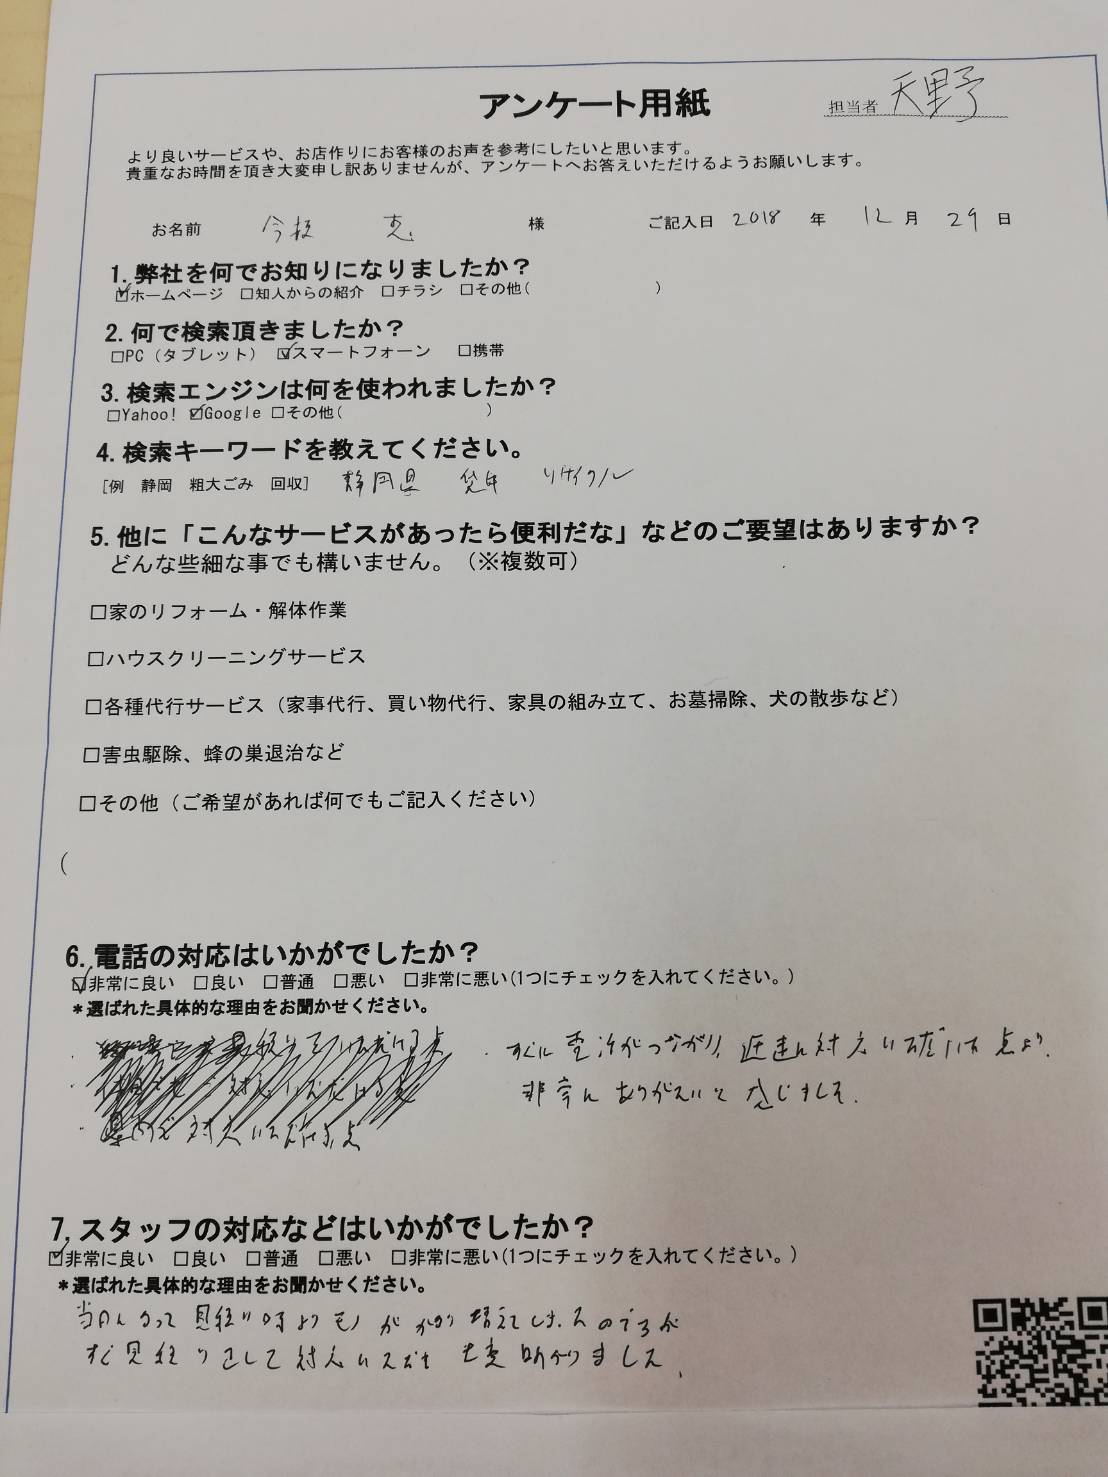 アンケート用紙
担当者 天野
より良いサービスや、お店作りにお客様のお声を参考にしたいと思います。
貴重なお時間を頂き大変申し訳ありませんが、アンケートへお答えいただけるようお願いします。
お名前 今 恵 様 ご記入日 2018 年 12 月 29 日
1. 弊社を何でお知りになりましたか？
☑ホームページ □知人からの紹介 □チラシ □その他( )
2. 何で検索頂きましたか？
□PC（タブレット） ☑スマートフォーン □携帯
3. 検索エンジンは何を使われましたか？
□Yahoo! ☑Google □その他( )
4. 検索キーワードを教えてください。
[例 静岡 粗大ごみ 回収] 静岡県 リサイクル
5. 他に「こんなサービスがあったら便利だな」などのご要望はありますか？
どんな些細な事でも構いません。（※複数可）
□家のリフォーム・解体作業
□ハウスクリーニングサービス
□各種代行サービス（家事代行、買い物代行、家具の組み立て、お墓掃除、犬の散歩など）
□害虫駆除、蜂の巣退治など
□その他（ご希望があれば何でもご記入ください）
(
6. 電話の対応はいかがでしたか？
☑非常に良い □良い □普通 □悪い □非常に悪い(1つにチェックを入れてください。)
＊選ばれた具体的な理由をお聞かせください。
・すぐに電話がつながり、迅速に対応いただけた点より、
非常にありがたいと感じました。
7. スタッフの対応などはいかがでしたか？
☑非常に良い □良い □普通 □悪い □非常に悪い(1つにチェックを入れてください。)
＊選ばれた具体的な理由をお聞かせください。
当日になって見積り時よりモノがかなり増えてしまったのですが
すぐ見積りをして対応いただき大変助かりました。